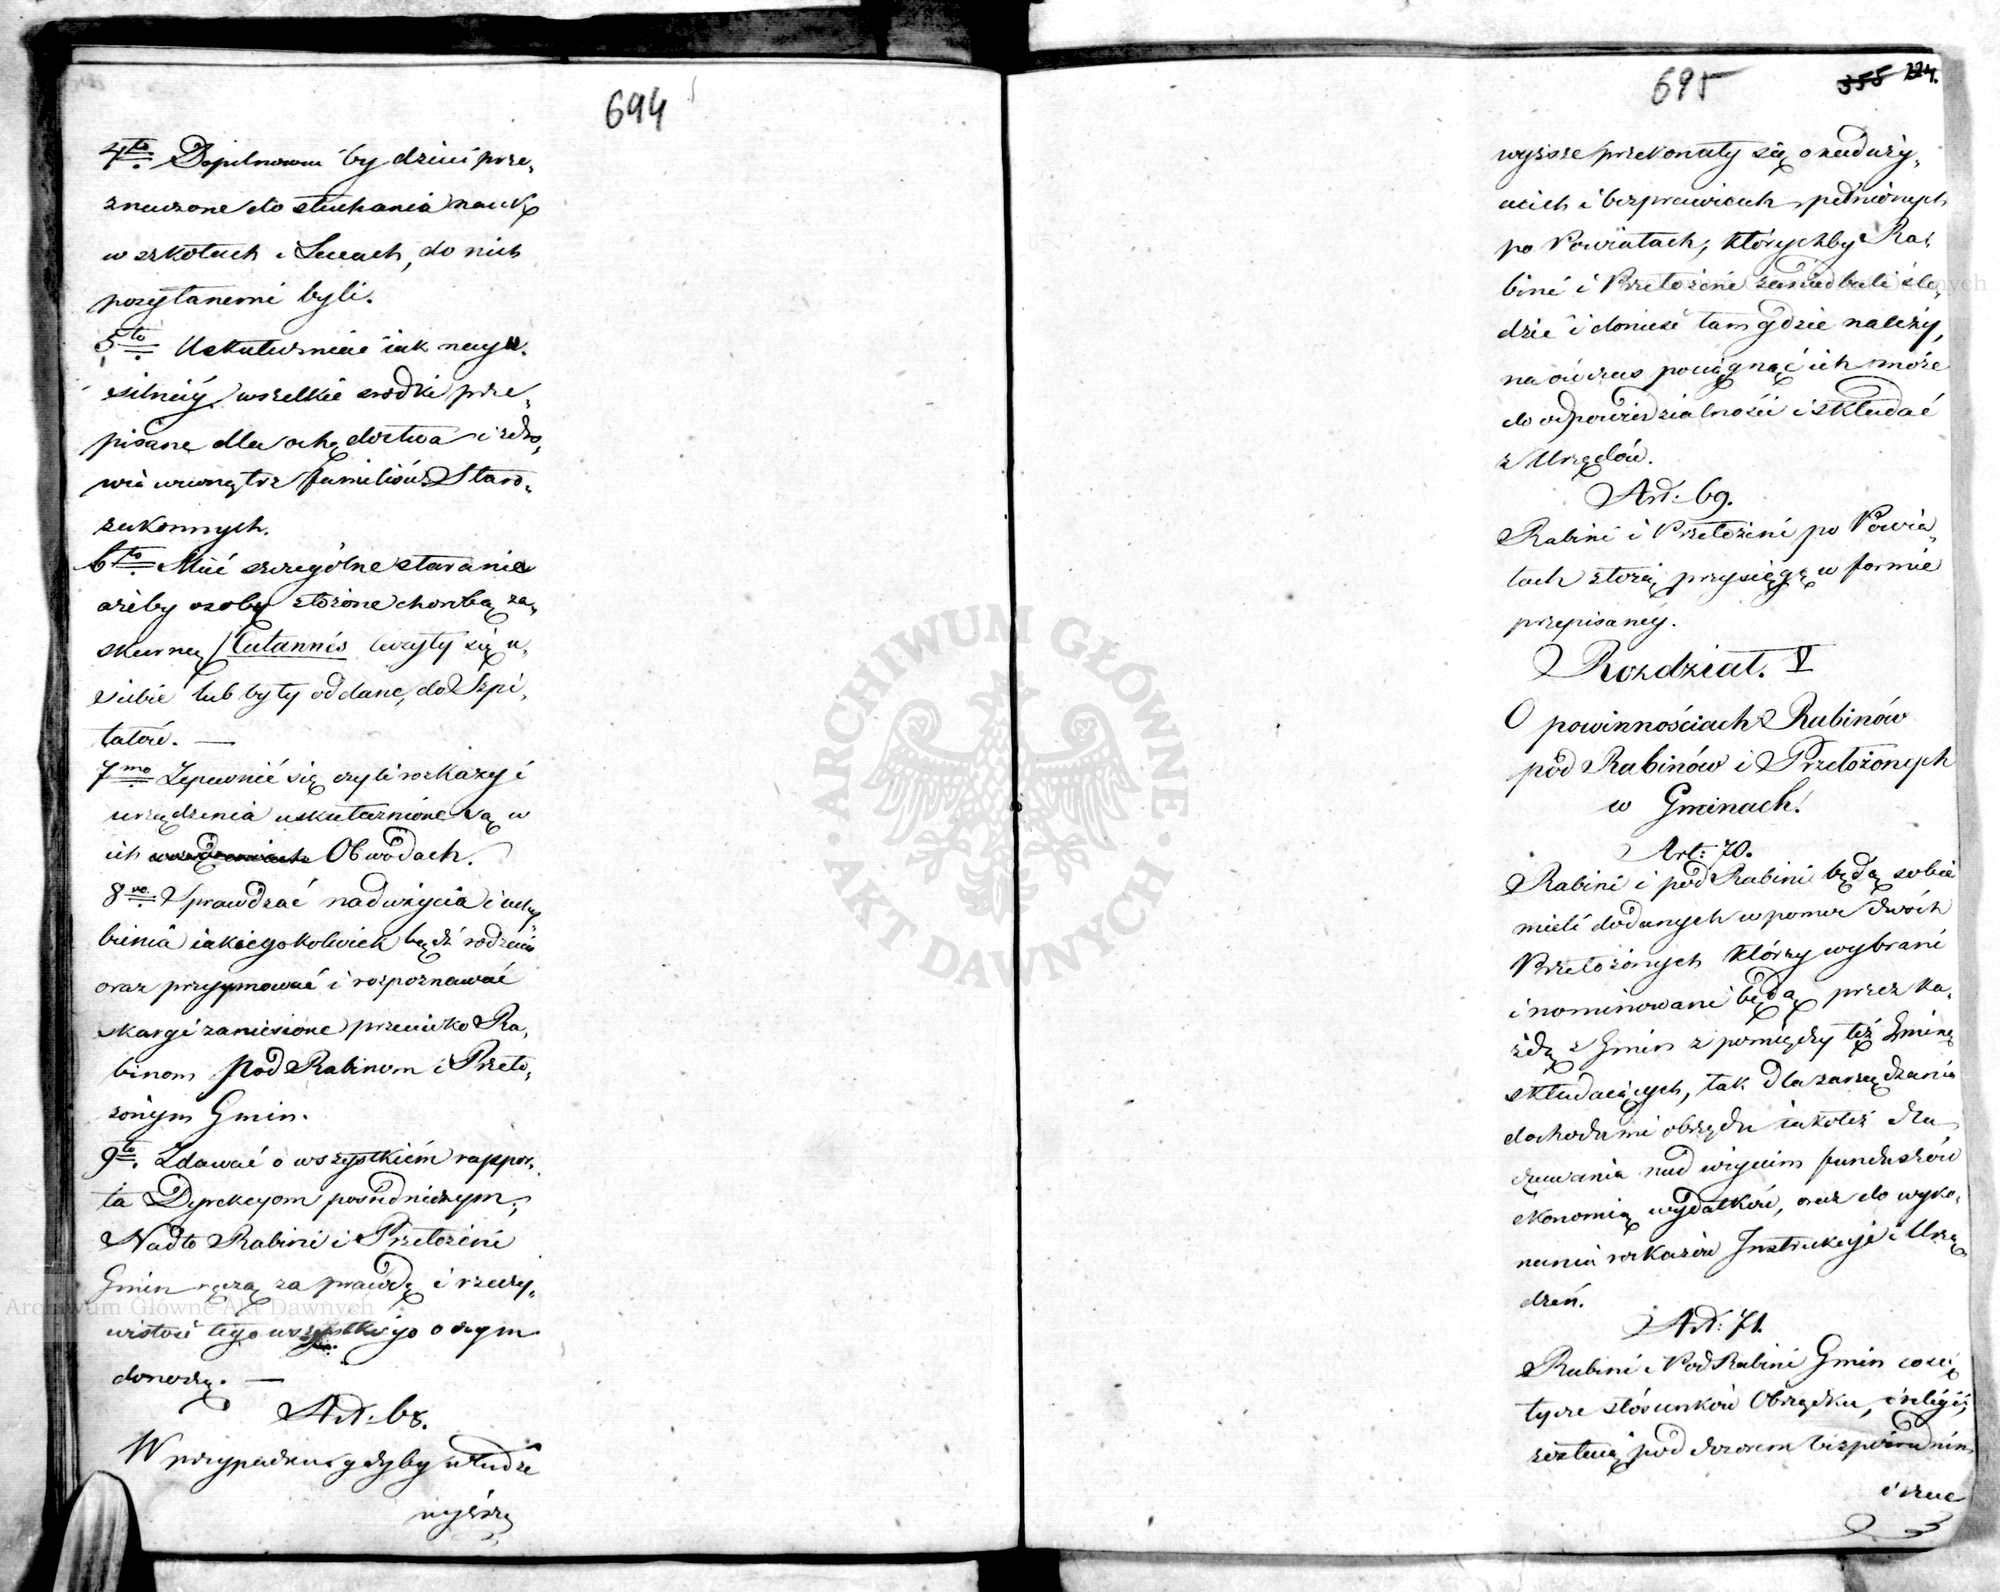 694
4to Dopilnować by dzieci prze,
znaczone do słuchania nauk
w szkołach i Liceach, do nich
posyłanemi byli.
5to Uskuteczniać iak nayu.
silniéy wszelkie srodki prze,
pisane dla ochędostwa i zdro,
wia wewnątrz familiów Staro,
zakonnych.
6to Mieć szczególne staranie
ażeby osoby złożone chorobą za,
skurną /Cutannés leczyły się u,
siebie lub były oddane do Szpi,
talów. —
7mo Zapewnić się czyli rozkazy i
urządzenia uskutecznione są w
ich Obwodach.
8vo Sprawdzać nadużycia i uchy,
bienia iakiegokolwiek bądź rodzaiu
oraz przyymować i rozpoznawać
skargi zaniesione przeciwko Ra,
binom Pod Rabinom i Przeło,
żonym Gmin.
9to. Zdawać o wszystkiém rappor,
ta Dyrekcyom pośredniczym;
Nadto Rabini i Przełożeni
Gmin ręczą za prawdę i rzeczy,
wistość tego wszystkiego o czym
donoszą. —
Art: 68.
W przypadku gdyby władze
wyższe
695
355 224.
wyższe przekonały się o naduży,
uciech i bezprawiach pełnionych
po Powiatach, którychby Ra,
bini i Przełożeni zaniedbali śle,
dzić i donieść tam gdzie należy,
na ówczas pociągnąć ich może
do odpowiedzialności i składać
z Urzędów.
Art: 69.
Rabini i Przełożeni po Powia,
tach złożą przysięgę w formie
przepisanéy.
Rozdział. V
O powinnościach Rabinów
pod Rabinów i Przełożonych
w Gminach.
Art: 70.
Rabini i pod Rabini będą sobie
mieli dodanych w pomoc dwóch
Przełożonych którzy wybrani
i nominowani będą przez ka,
żdą z Gmin z pomiędzy téż Gminę
składaiących, tak dla zarządzania
dochodami obrzędu iakotéż dla
czuwania nad użyciem funduszów
ekonomią wydatków, oraz do wyko,
nania rozkazów Instrukcyi i Urzą
dzeń.
Art: 71.
Rabini i Pod Rabini Gmin co się
tycze stósunków Obrządku, i religii,
zostaią pod dozorem bezpośrednim
i zna